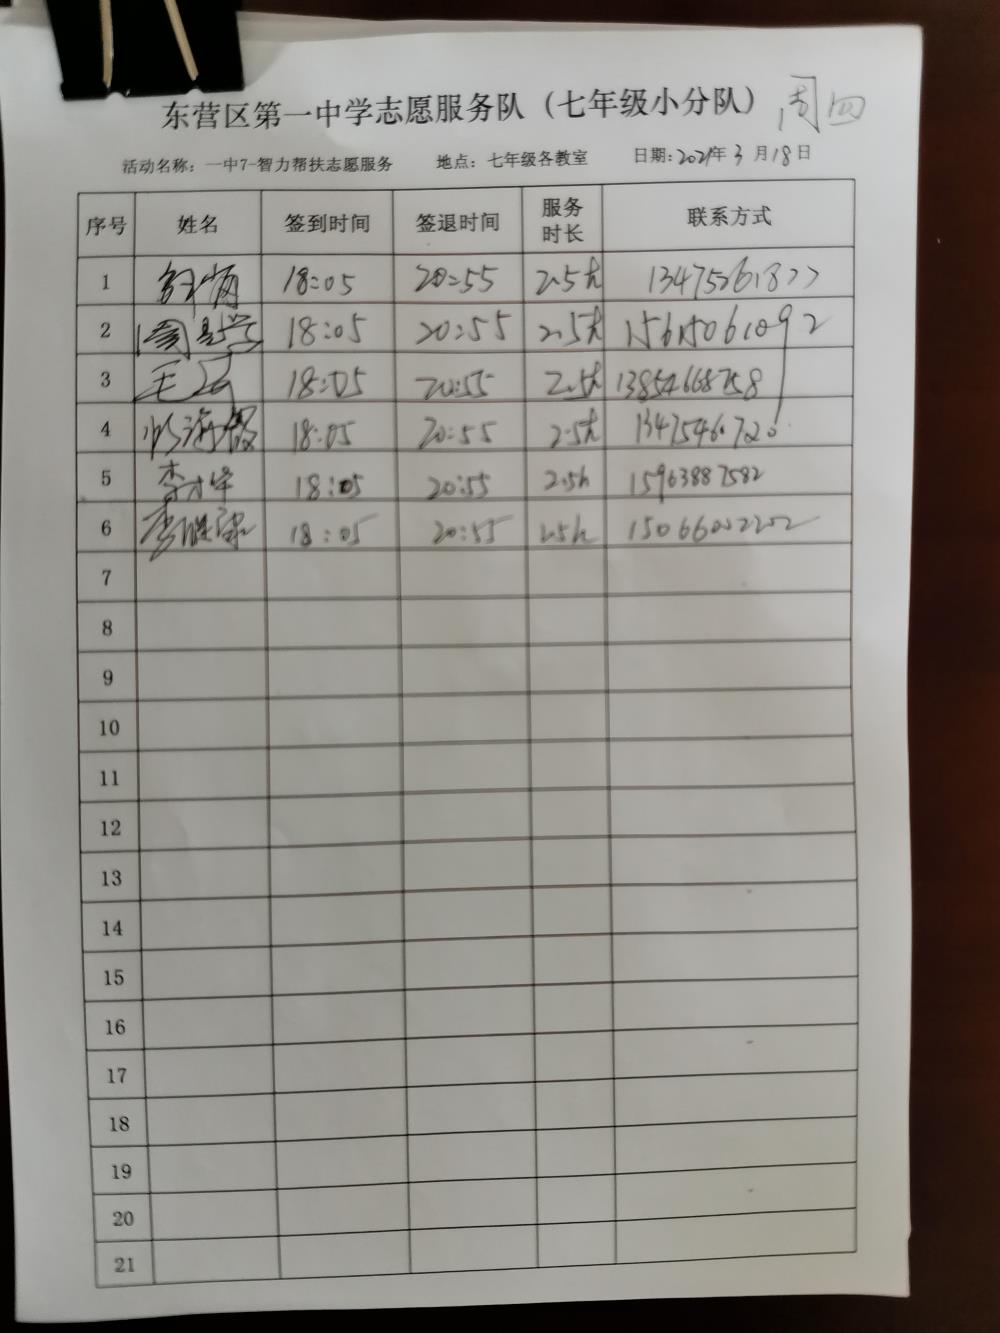 东营区第一中学志愿服务队（七年级小分队） 周四
活动名称：一中7-智力帮扶志愿服务 地点：七年级各教室 日期：2021年3月18日
序号 姓名 签到时间 签退时间 服务时长 联系方式
1 18:05 20:55 2.5h
2 18:05 20:55 2.5h 15615061092
3 18:05 20:55 2.5h 13854668758
4 18:05 20:55 2.5h
5 18:05 20:55 2.5h 15963887582
6 李胜 18:05 20:55 2.5h 15066002202
7
8
9
10
11
12
13
14
15
16
17
18
19
20
21